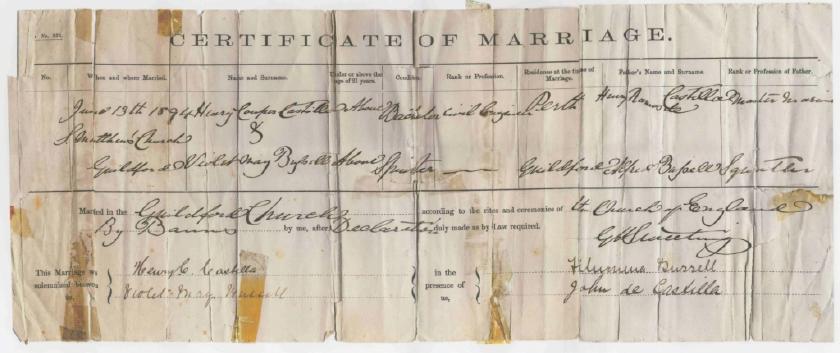 No. 
CERTIFICATE OF MARRIAGE.
No. When and where Married. Name and Surname. Under or above the age of 21 years. Condition. Rank or Profession. Residence at the time of Marriage. Father's Name and Surname. Rank or Profession of Father.
June 13th 1894 Henry Cowper Castilla Above Bachelor Civil Engin Perth Henry Castilla Master Marin
St Matthew's Church &
Guildford Violet May Bussell Above Spinster Guildford Alfred Bussell Squatter
Married in the Guildford Church according to the rites and ceremonies of the Church of England
By Banns by me, after Declaration duly made as by Law required.
This Marriage w Henry C. Castilla in the Filumena Bussell
solemnized between Violet May Bussell presence of John de Castilla
us, us,